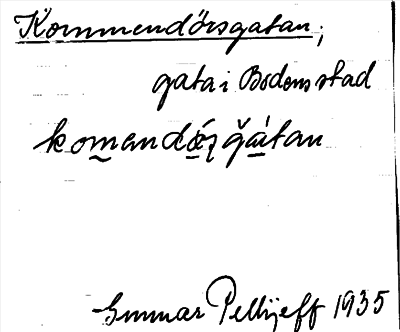 Kommendörsgatan;
gata i Bodens stad
komandǿʒ ğátan
Gunnar Pellijeff 1935